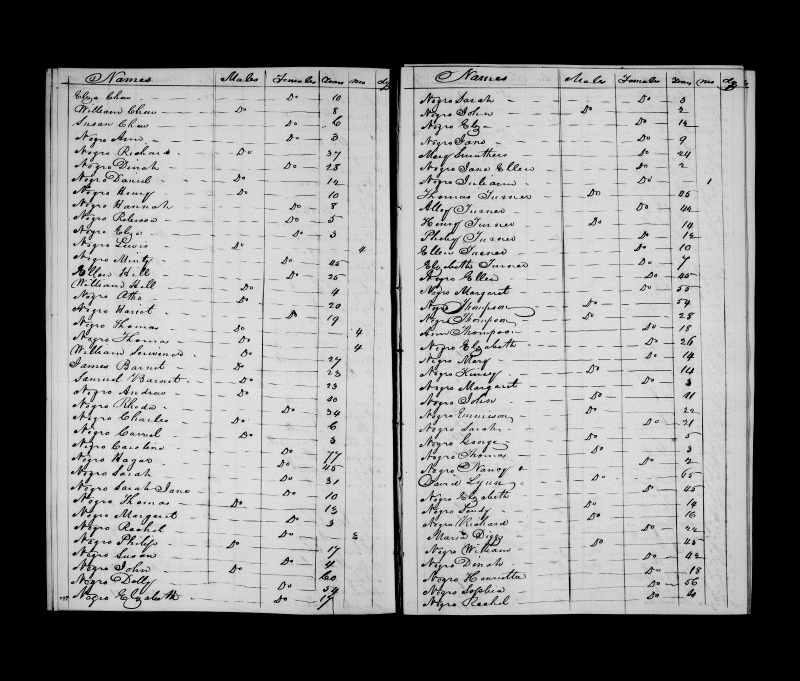 Names Males Females Years mo dy
Eliza Chew Do 10
William Chew Do 8
Susan Chew Do 6
Negro Ann Do 3
Negro Richard Do 37
Negro Dinah Do 28
Negro Daniel Do 12
Negro Henry Do 10
Negro Hannah Do 8
Negro Do 5
Negro Eliza Do 3
Negro Lewis Do 4
Negro Minty Do 45
Ellen Hill Do 25
William Hill Do 4
Negro Otho Do 20
Negro Harriot Do 19
Negro Thomas Do 4
Negro Thomas Do 4
William Do 27
James Barnet Do 23
Samuel Barnet Do 23
Negro Andrew Do
Negro Rhoda Do 34
Negro Charles Do 6
Negro Do 3
Negro Caroline Do 17
Negro Hagar Do 45
Negro Sarah Do 31
Negro Sarah Jane Do 10
Negro Thomas Do 13
Negro Margaret Do 3
Negro Rachel Do
Negro Philip Do 17
Negro Susan Do
Negro John Do
Negro Dolly Do
Negro Elizabeth Do 17
Names Males Females Years mo dy
Negro Sarah Do 3
Negro John Do 2
Negro Eliza Do 12
Negro Jane Do 9
Mary Smothers Do 24
Negro Jane Ellen Do 2
Negro Juliann Do 1
Thomas Turner Do 45
Alley Turner Do
Henry Turner Do 14
Philip Turner Do 12
Ellen Turner Do 10
Elizabeth Turner Do 7
Negro Ellen Do 45
Negro Margaret Do 55
Negro Thompson Do 54
Negro Thompson Do 28
Ann Thompson Do 18
Negro Elizabeth Do 26
Negro Mary Do 14
Negro Henry Do 14
Negro Margaret Do 3
Negro John Do 11
Negro Do 22
Negro Sarah Do 21
Negro George Do 5
Negro Thomas Do 3
Negro Nancy Do 2
David Lynn Do 65
Negro Elizabeth Do 45
Negro Do 14
Negro Richard Do 16
Maria Diggs Do 22
Negro William Do 45
Negro Dinah Do 42
Negro Henrietta Do 18
Negro Sophia Do 56
Negro Rachel Do